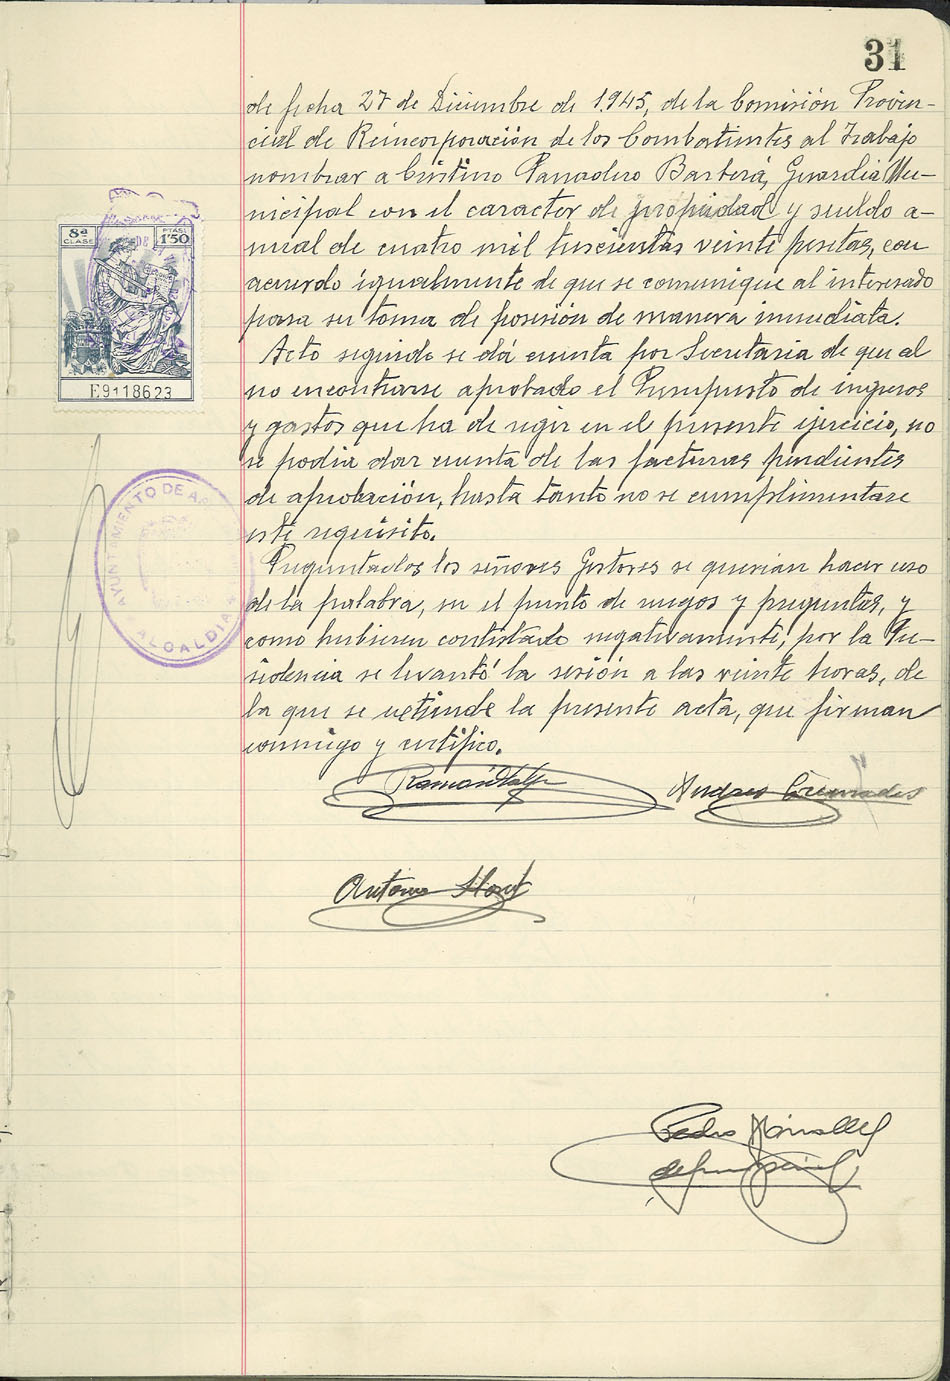 31
de fecha 27 de Diciembre de 1.945, de la Comisión Provin-
cial de Reincorporación de los Combatientes al Trabajo
nombrar a Cristino Panadero Barberá, Guardia Mu-
nicipal con el caracter de propiedad y sueldo a-
nual de cuatro mil trescientas veinte pesetas, con
acuerdo igualmente de que se comunique al interesado
para su toma de posesión de manera inmediata.
Acto seguido se dá cuenta por Secretaria de que al
no encontrarse aprobado el Presupuesto de ingresos
y gastos que ha de regir en el presente ejercicio, no
se podia dar cuenta de las facturas pendientes
de aprobación, hasta tanto no se cumplimentase
este requisito.
Preguntados los señores Gestores se querian hacer uso
de la palabra, en el punto de ruegos y preguntas, y
como hubiesen contestado negativamente, por la Pre-
sidencia se levantó la sesión a las veinte horas, de
la que se extiende la presente acta, que firman
conmigo y certifico.
8ª CLASE
PTAS. 1'50
E9118623
AYUNTAMIENTO DE
ALCALDIA
Ramón
Andres
Antonio
Pedro